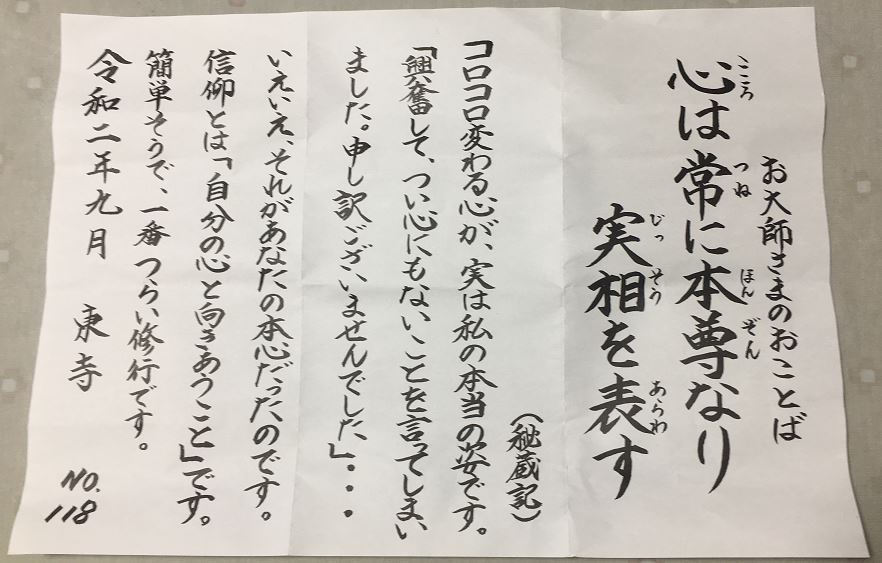 お大師さまのおことば
心は常に本尊なり
こころ つね ほん ぞん
実相を表す
じっ そう あらわ
(秘蔵記)
コロコロ変わる心が、実は私の本当の姿です。
「興奮して、つい心にもないことを言ってしまい
ました。申し訳ございませんでした」・・・
いえいえ、それがあなたの本心だったのです。
信仰とは「自分の心と向きあうこと」です。
簡単そうで、一番つらい修行です。
令和二年九月 東寺
NO.
118